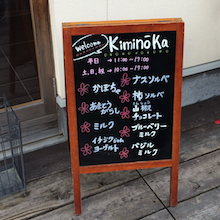 Welcome
KiminoKa
平日 → 11:00 - 17:00
土,日,祝 → 10:00 - 17:00
かぼちゃ
あまとうがらし
ミルク
イチジクジャム
ヨーグルト
ナスソルベ
柿ソルベ
山椒
チョコレート
ブルーベリー
ミルク
バジル
ミルク